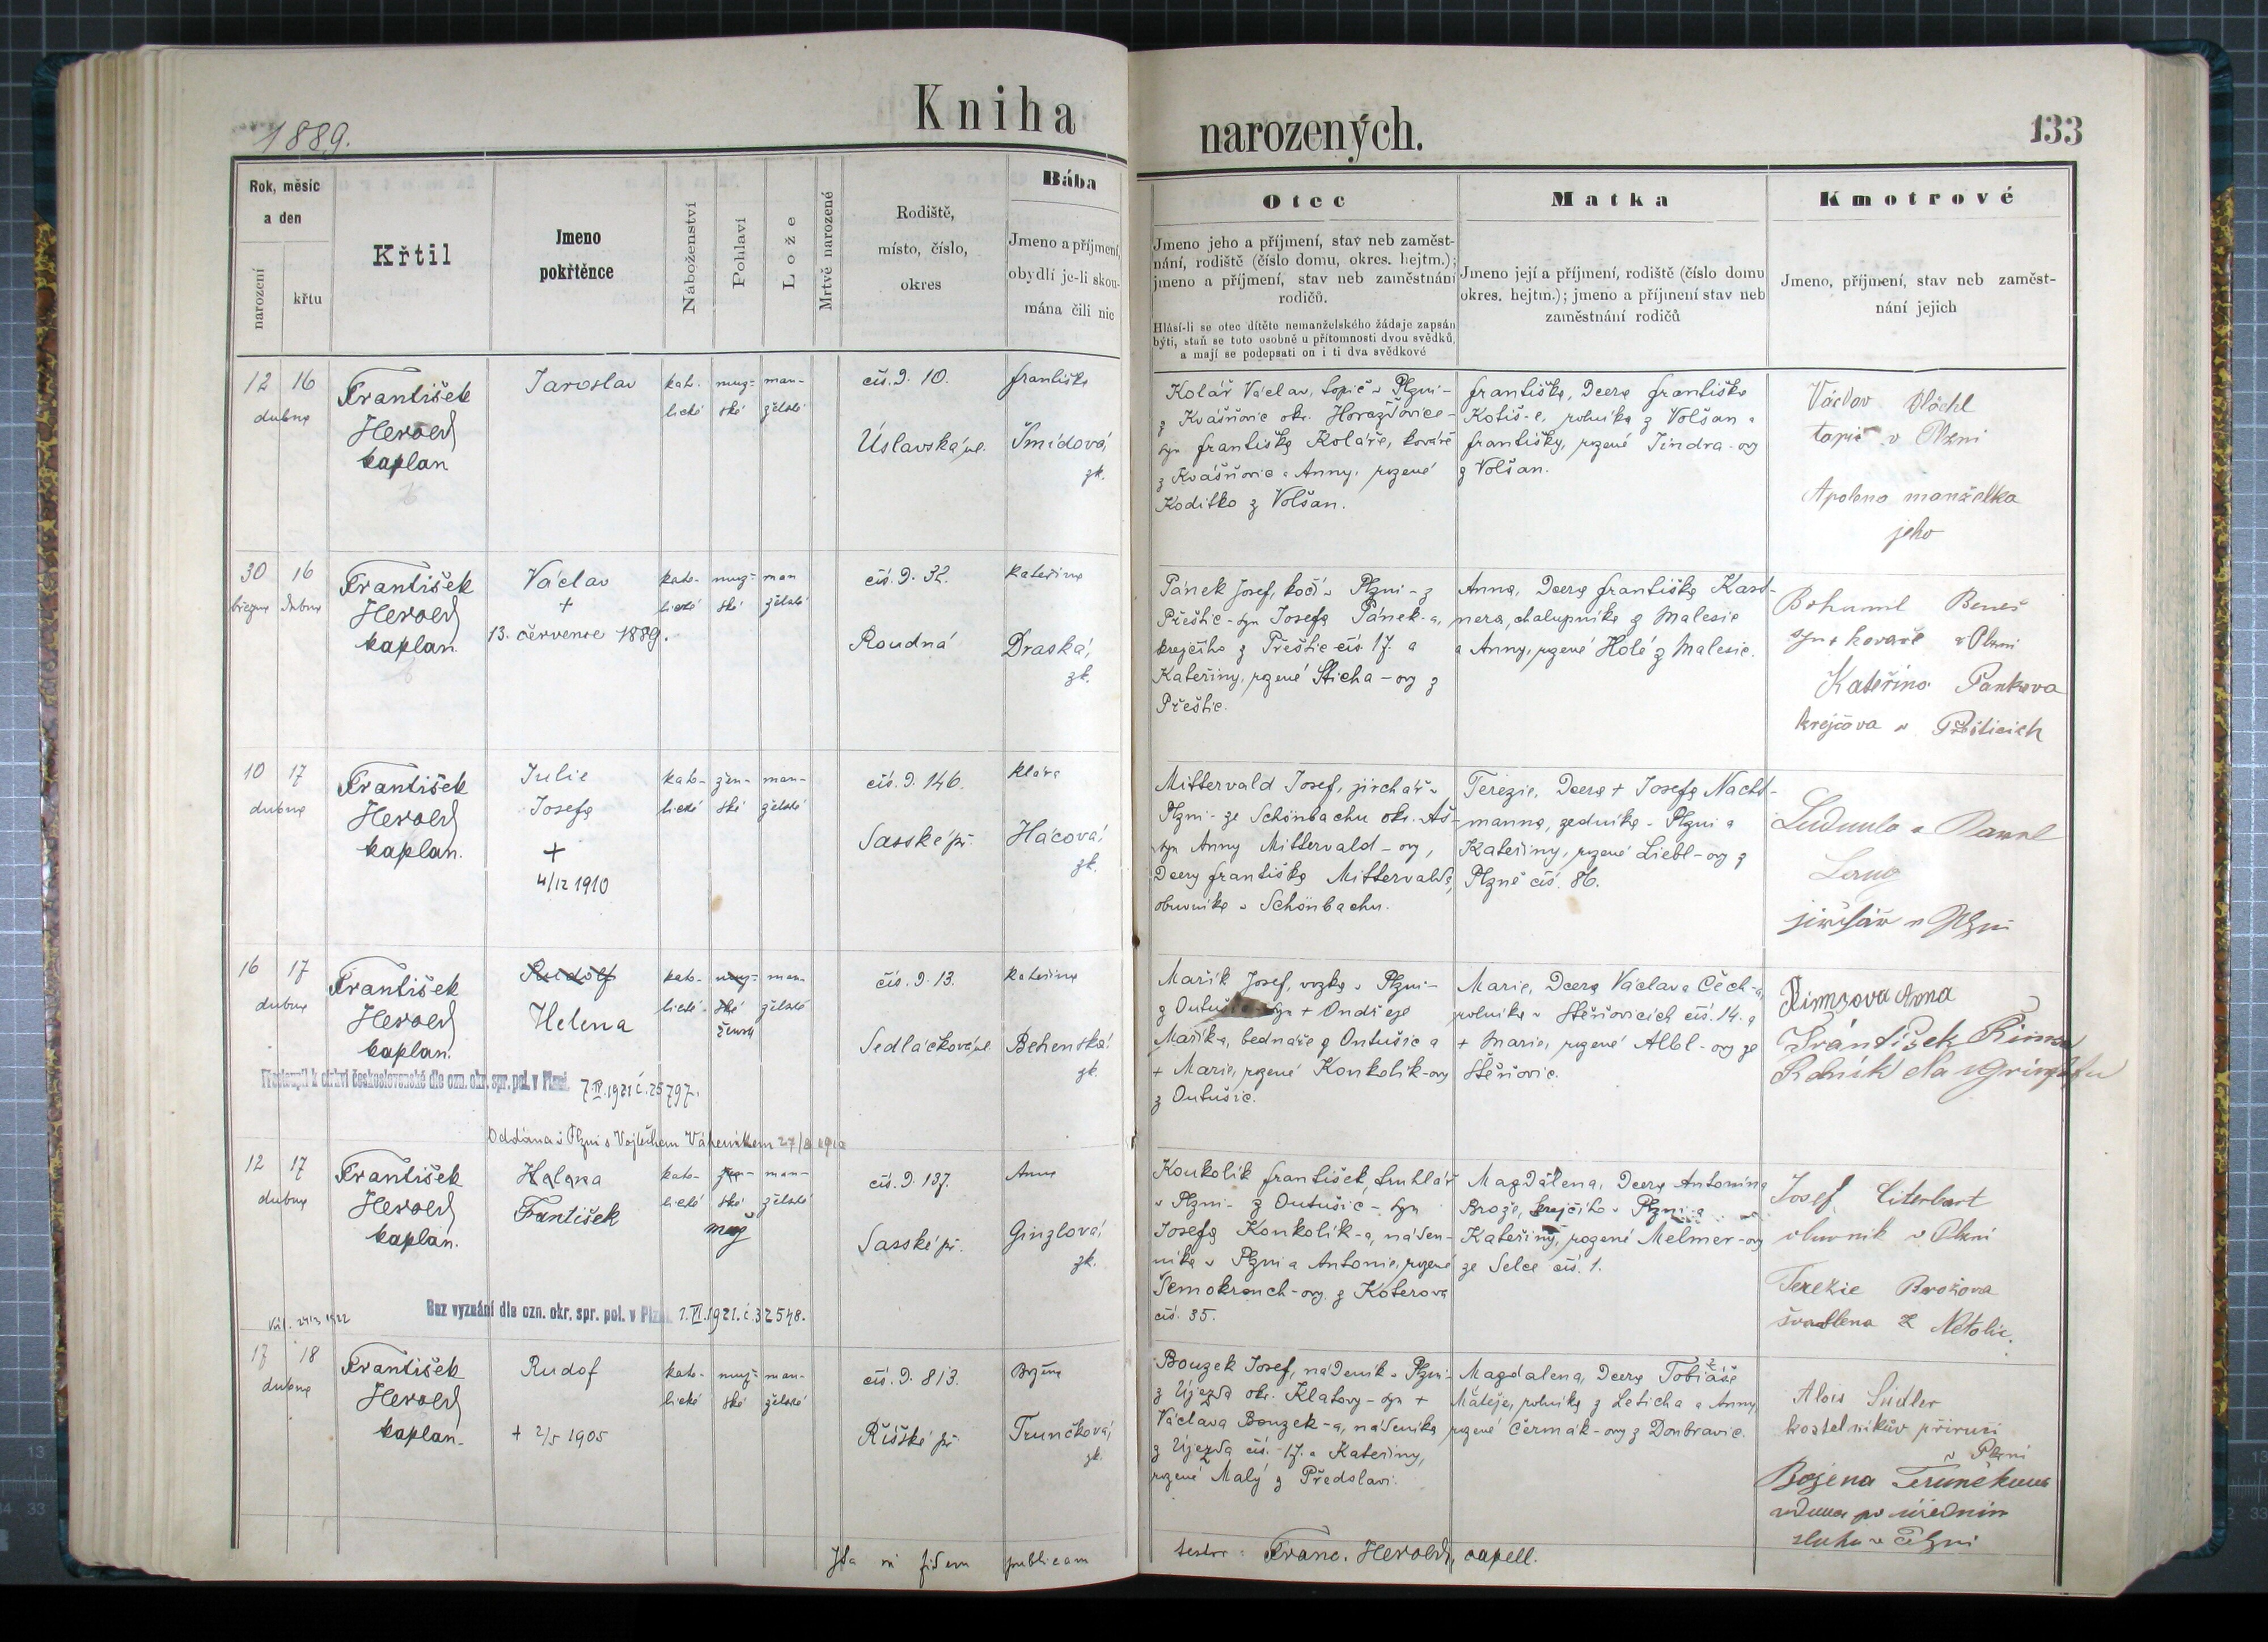 Kniha narozených.
1889.
133
Rok, měsíc
a den
narození
křtu
Křtil
Jmeno
pokřtěnce
Náboženství
Pohlaví
Lože
Mrtvě narozené
Rodiště,
místo, číslo,
okres
Bába
Jmeno a příjmení,
obydlí je-li skou-
mána čili nic
Otec
Jmeno jeho a příjmení, stav neb zaměst-
nání, rodiště (číslo domu, okres. hejtm.);
jmeno a příjmení, stav neb zaměstnání
rodičů.
Hlásí-li se otec dítěte nemanželského žádaje zapsán
býti, staň se toto osobně u přítomnosti dvou svědků,
a mají se podepsati on i ti dva svědkové
Matka
Jmeno její a příjmení, rodiště (číslo domu
okres. hejtm.); jmeno a příjmení stav neb
zaměstnání rodičů
Kmotrové
Jmeno, příjmení, stav neb zaměst-
nání jejich
12 16
dubna
František
Herold
kaplan
Jaroslav
kato-
lické
muž-
ské
man-
želské
čís. d. 10.
Úslavská ul.
Františka
Šmídová,
zk.
Kolář Václav, topič v Plzni -
z Kvášňovic okr. Horažďovice -
syn Františka Koláře, kováře
z Kvášňovic a Anny, rozené
Koditka z Volšan.
Františka, dcera Františka
Kotiš-e, rolníka z Volšan a
Františky, rozené Jindra-ovy
z Volšan.
Václav
topič v Plzni
Apolena manželka
jeho
30 16
března dubna
František
Herold
kaplan.
Václav
+
13. července 1889.
kato-
lické
muž-
ské
man
želské
čís. d. 32.
Roudná
Kateřina
Draská,
zk.
Pánek Josef, kočí v Plzni - z
Přeštic - syn Josefa Pánek-a,
krejčího z Přeštic čís. 17. a
Kateřiny, rozené Sticha-ovy z
Přeštic.
Anna, dcera Františka Kast-
nera, chalupníka z Malesic
a Anny, rozené Holé z Malesic.
Bohumil Beneš
syn kováře v Plzni
Kateřina Pankova
krejčova v Přešticích
10 17
dubna
František
Herold
kaplan.
Julie
Josefa
+
4/12 1910
kato-
lické
žen-
ské
man-
želské
čís. d. 146.
Sasské př.
Klára
Hácová,
zk.
Mittervald Josef, jirchář v
Plzni - ze Schönbachu okr. Aš -
syn Anny Mittervald-ovy,
dcery Františka Mittervalda,
obuvníka v Schönbachu.
Terezie, dcera + Josefa Nacht-
manna, zedníka v Plzni a
Kateřiny, rozené Liebl-ovy z
Plzně čís. 86.
Ludmila a Pavel
jirchář v Plzni
16 17
dubna
František
Herold
kaplan.
Rudolf
Helena
kato-
lické
muž-
ské
ženské
man-
želské
čís. d. 13.
Sedláčkova ul.
Kateřina
Behenská,
zk.
Přestoupil k církvi československé dle ozn. okr. spr. pol. v Plzni 7.IV.1921 č. 25797.
Oddána v Plzni s Vojtěchem
Mařík Josef, vozka v Plzni -
z Outušic syn + Ondřeje
Mařík-a, bednáře z Outušic a
+ Marie, rozené Konkolík-ovy
z Outušic.
Marie, dcera Václava Čech-a,
rolníka v Štěňovicích čís. 14. a
+ Marie, rozené Albl-ovy ze
Štěňovic.
Anna
František
12 17
dubna
František
Herold
kaplan.
Helena
František
kato-
lické
žen-
ské
muž
man-
želské
čís. d. 137.
Sasské př.
Anna
Ginzlová,
zk.
Bez vyznání dle ozn. okr. spr. pol. v Plzni 1.VI.1921. č. 32548.
Koukolík František, truhlář
v Plzni - z Outušic - syn
Josefa Konkolík-a, náden-
níka v Plzni a Antonie, rozené
Šemokrouch-ovy z Koterova
čís. 35.
Magdalena, dcera Antonína
Brože, krejčího v Plzni a
Kateřiny, rozené Melmer-ovy
ze Selce čís. 1.
Josef Literbart
obuvník v Plzni
Terezie Brožova
švadlena z Netolic.
17 18
dubna
František
Herold
kaplan.
Rudof
+ 2/5 1905
kato-
lické
muž-
ské
man-
želské
čís. d. 813.
Říšské př.
Božena
Trunčková,
zk.
Bouzek Josef, nádeník v Plzni -
z Újezda okr. Klatovy - syn +
Václava Bouzek-a, nádeníka
z Újezda čís. 17. a Kateřiny,
rozené Malý z Předslavi.
Magdalena, dcera Tobiáše
Matěje, rolníka z Leticha a Anny,
rozené Čermák-ovy z Doubravic.
Alois Sudler
kostelníkův příručí
v Plzni
Božena
vdova po úředním
sluhu v Plzni
Ita in fidem publicam
testor: Franc. Herold, capell.